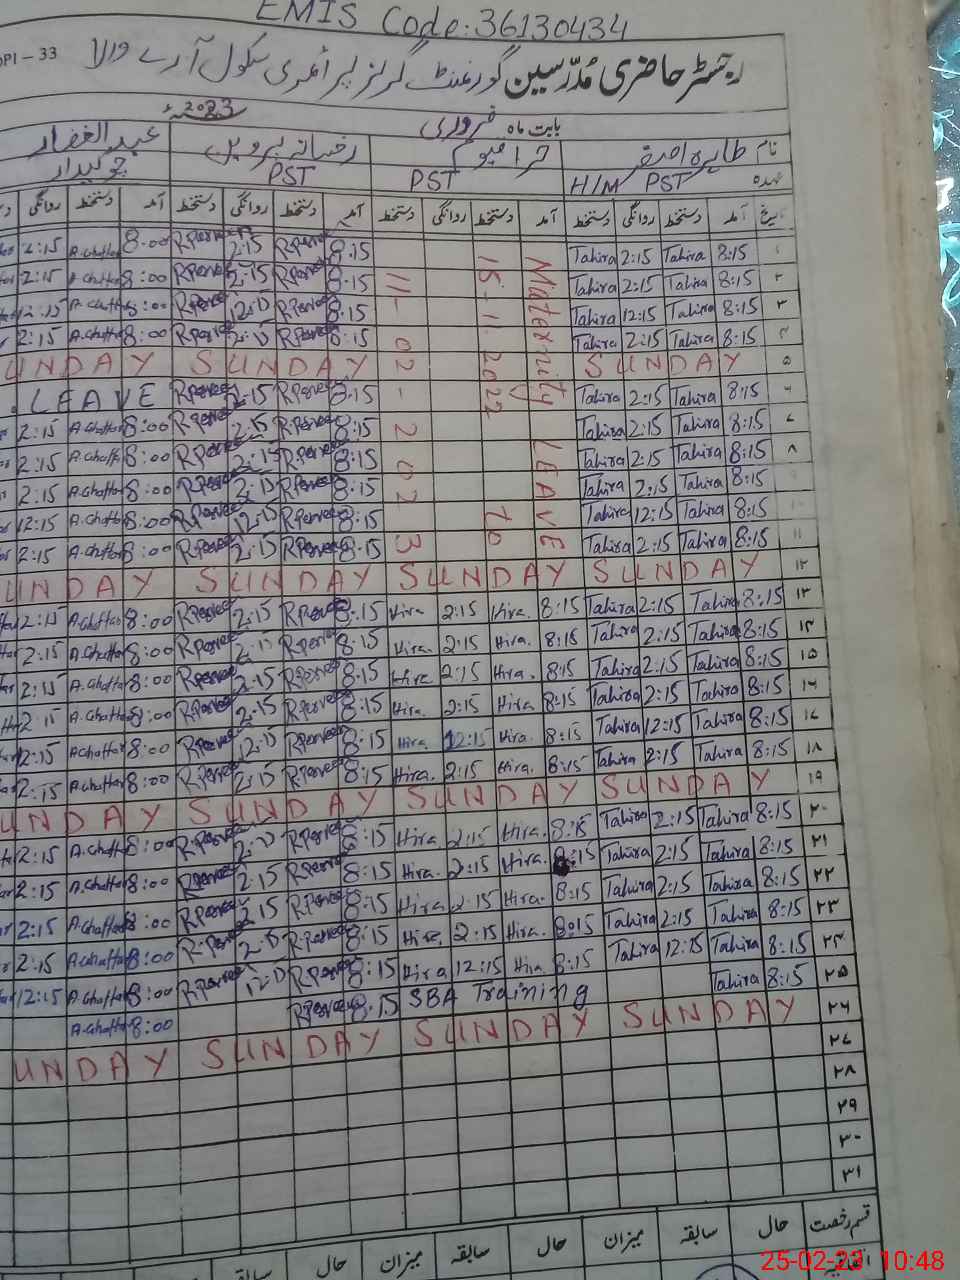 EMIS Code:36130434
DPI-33
رجسٹر حاضری مُدرّسین گورنمنٹ گرلز پرائمری سکول آرے والا
بابت ماہ فروری 2023ء
نام طاہرہ اصغر حرا قیوم رخسانہ پروین عبدالغفار
عہدہ H/M PST PST PST چوکیدار
تاریخ آمد دستخط روانگی دستخط آمد دستخط روانگی دستخط آمد دستخط روانگی دستخط آمد دستخط روانگی
۱ 8:15 Tahira 2:15 Tahira 8:15 2:15 8:00 2:15
۲ 8:15 Tahira 2:15 Tahira 8:15 2:15 8:00 2:15
۳ 8:15 Tahira 12:15 Tahira 8:15 12:15 8:00 12:15
۴ 8:15 Tahira 2:15 Tahira 8:15 2:15 8:00 2:15
Maternity LEAVE
15-11-2022 to
11-02-2023
۵ SUNDAY SUNDAY UNDAY
۶ 8:15 Tahira 2:15 Tahira 8:15 2:15 LEAVE
۷ 8:15 Tahira 2:15 Tahira 8:15 2:15 8:00 2:15
۸ 8:15 Tahira 2:15 Tahira 8:15 2:15 8:00 2:15
8:15 Tahira 2:15 Tahira 8:15 2:15 8:00 2:15
۱۰ 8:15 Tahira 12:15 Tahira 8:15 12:15 8:00 12:15
۱۱ 8:15 Tahira 2:15 Tahira 8:15 2:15 8:00 2:15
۱۲ SUNDAY SUNDAY SUNDAY UNDAY
۱۳ 8:15 Tahira 2:15 Tahira 8:15 Hira. 2:15 Hira. 8:15 2:15 8:00 2:15
۱۴ 8:15 Tahira 2:15 Tahira 8:15 Hira. 2:15 Hira. 8:15 2:15 8:00 2:15
۱۵ 8:15 Tahira 2:15 Tahira 8:15 Hira. 2:15 Hira 8:15 2:15 8:00 2:15
۱۶ 8:15 Tahira 2:15 Tahira 8:15 Hira. 2:15 Hira. 8:15 2:15 8:00 2:15
۱۷ 8:15 Tahira 12:15 Tahira 8:15 Hira. 12:15 Hira 8:15 12:15 8:00 12:15
۱۸ 8:15 Tahira 2:15 Tahira 8:15 Hira. 2:15 Hira. 8:15 2:15 8:00 2:15
۱۹ SUNDAY SUNDAY SUNDAY UNDAY
۲۰ 8:15 Tahira 2:15 Tahira 8:15 Hira. 2:15 Hira 8:15 2:15 8:00 2:15
۲۱ 8:15 Tahira 2:15 Tahira 8:15 Hira. 2:15 Hira. 8:15 2:15 8:00 2:15
۲۲ 8:15 Tahira 2:15 Tahira 8:15 Hira. 2:15 Hira 8:15 2:15 8:00 2:15
۲۳ 8:15 Tahira 2:15 Tahira 8:15 Hira. 2:15 Hira. 8:15 2:15 8:00 2:15
۲۴ 8:15 Tahira 12:15 Tahira 8:15 Hira 12:15 Hira 8:15 12:15 8:00 12:15
۲۵ 8:15 Tahira SBA Training 8:15 8:00
۲۶ SUNDAY SUNDAY SUNDAY UNDAY
۲۷
۲۸
۲۹
۳۰
۳۱
قسم رخصت حال سابقہ میزان حال سابقہ میزان حال
اتفاقیہ
25-02-23 10:48